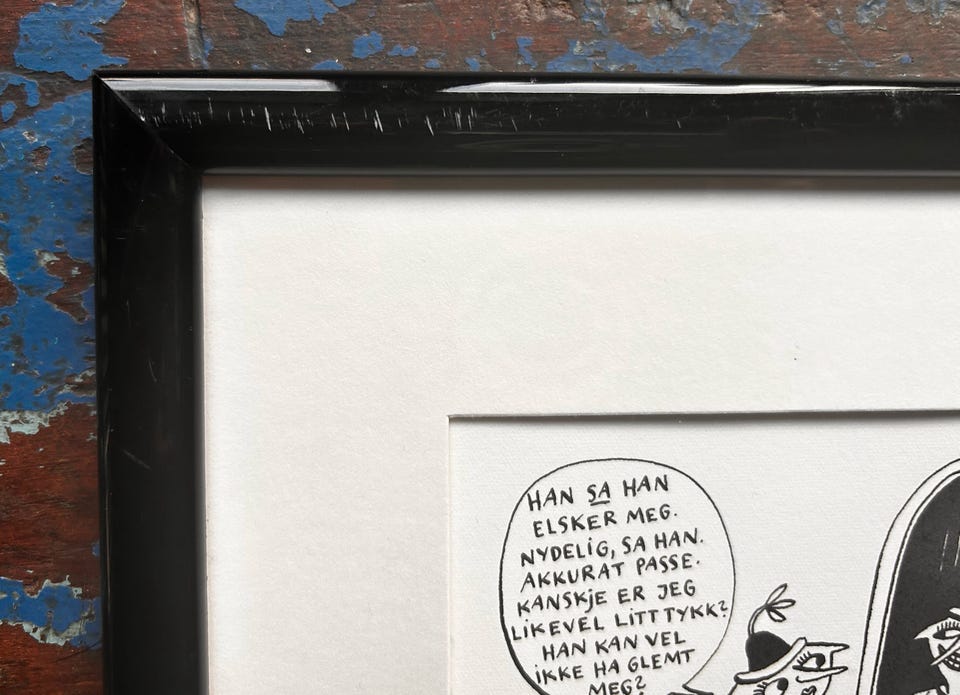 HAN SA HAN
ELSKER MEG.
NYDELIG, SA HAN.
AKKURAT PASSE.
KANSKJE ER JEG
LIKEVEL LITT TYKK?
HAN KAN VEL
IKKE HA GLEMT
MEG?